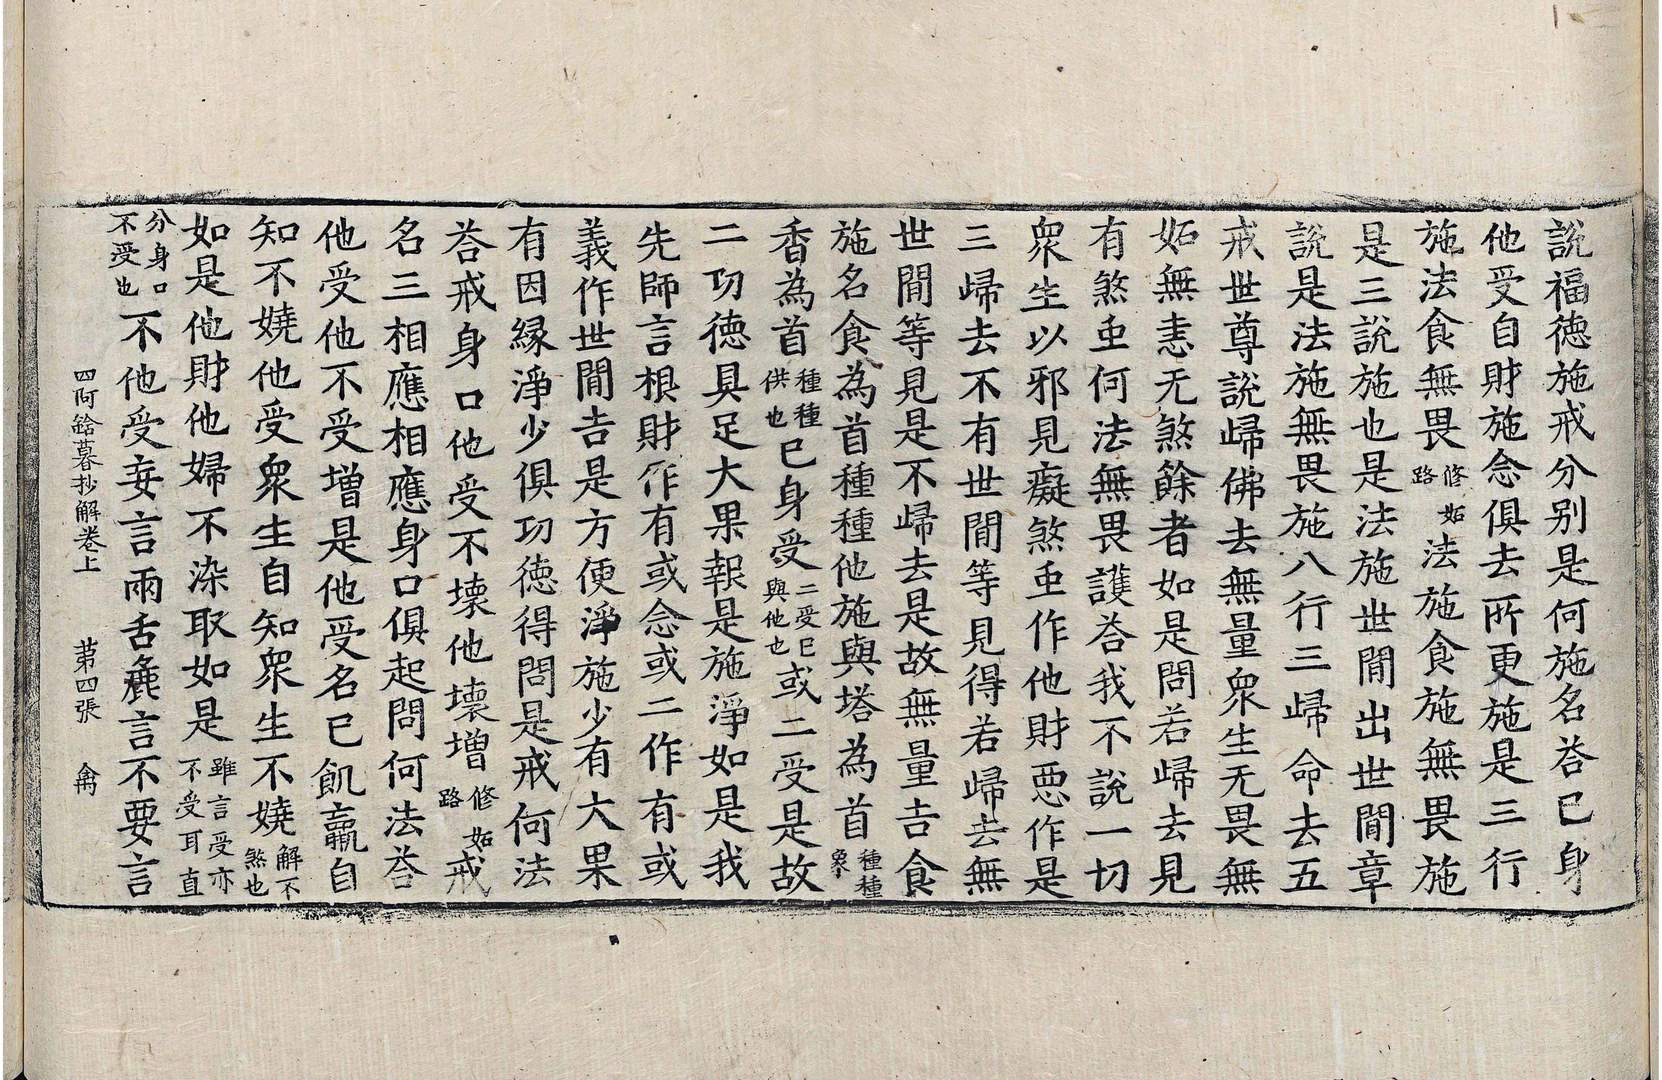 說福德施戒分別是何施名荅已身
他受自財施念俱去所更施是三行
施法食無畏修妬路法施食施無畏施
是三說施也是法施世間出世間章
說是法施無畏施八行三歸命去五
戒世尊說歸佛去無量衆生无畏無
妬無恚无煞餘者如是問若歸去見
有煞重何法無畏護荅我不說一切
衆生以邪見癡煞重作他財惡作是
三歸去不有世間等見得若歸去無
世間等見是不歸去是故無量吉食
施名食為首種種他施與塔為首種種象
香為首種種供也已身受二受已與他也或二受是故
二功德具足大果報是施淨如是我
先師言根財作有或念或二作有或
義作世間吉是方便淨施少有大果
有因緣淨少俱功德得問是戒何法
荅戒身口他受不壞他壞增修妬路戒
名三相應相應身口俱起問何法荅
他受他不受增是他受名已飢羸自
知不嬈他受衆生自知衆生不嬈解不煞也
如是他財他婦不染取如是雖言受亦不受耳直
分身口不受也不他受妄言兩舌麁言不要言
四阿鋡暮抄解卷上　第四張　禽